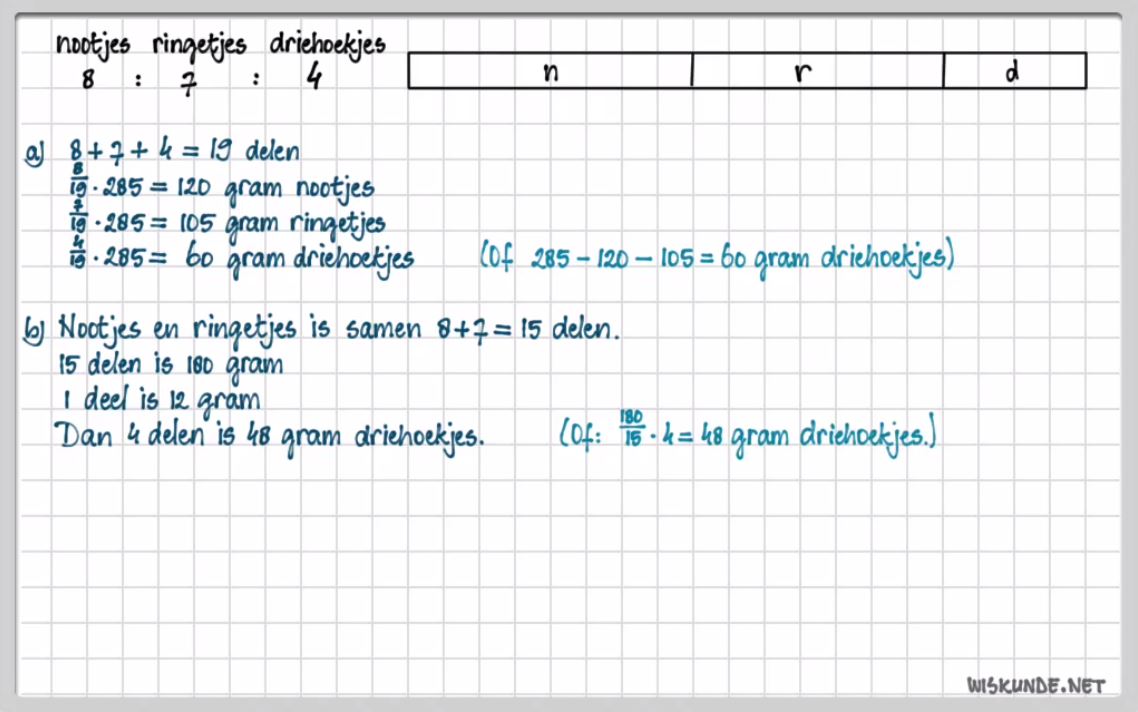 nootjes ringetjes driehoekjes
8 : 7 : 4
n r d
a) 8 + 7 + 4 = 19 delen
8/19 · 285 = 120 gram nootjes
7/19 · 285 = 105 gram ringetjes
4/19 · 285 = 60 gram driehoekjes (Of 285 - 120 - 105 = 60 gram driehoekjes)
b) Nootjes en ringetjes is samen 8 + 7 = 15 delen.
15 delen is 180 gram
1 deel is 12 gram
Dan 4 delen is 48 gram driehoekjes. (Of: 180/15 · 4 = 48 gram driehoekjes.)
WISKUNDE.NET